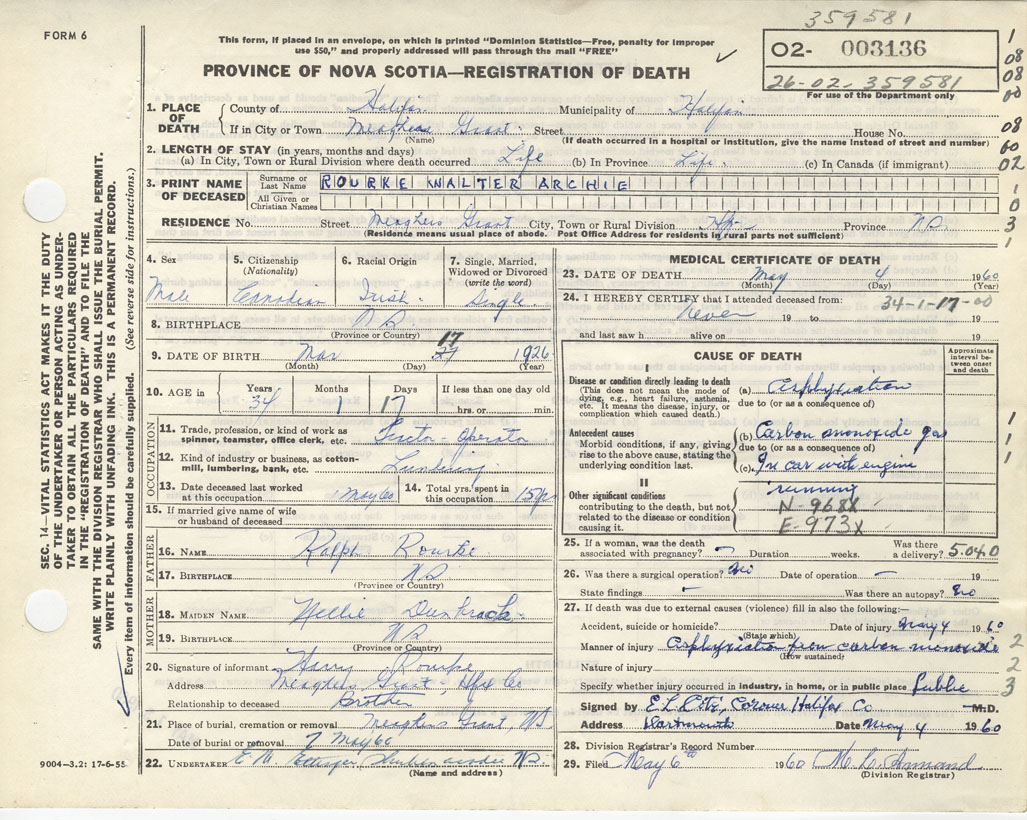 359581
FORM 6
This form, if placed in an envelope, on which is printed "Dominion Statistics—Free, penalty for improper
use $50," and properly addressed will pass through the mail "FREE"
02- 003136
26-02. 359581
For use of the Department only
PROVINCE OF NOVA SCOTIA—REGISTRATION OF DEATH
1. PLACE OF DEATH County of Halifax Municipality of Halifax
If in City or Town Meaghers Grant Street House No.
(Name) (If death occurred in a hospital or institution, give the name instead of street and number)
2. LENGTH OF STAY (in years, months and days)
(a) In City, Town or Rural Division where death occurred Life (b) In Province Life (c) In Canada (if immigrant)
3. PRINT NAME OF DECEASED Surname or Last Name ROURKE WALTER ARCHIE
All Given or Christian Names
RESIDENCE No. Street Meaghers Grant City, Town or Rural Division Hfx Province N.S.
(Residence means usual place of abode. Post Office Address for residents in rural parts not sufficient)
4. Sex 5. Citizenship (Nationality) 6. Racial Origin 7. Single, Married, Widowed or Divorced (write the word)
Male Canadian Irish Single
8. BIRTHPLACE N.S.
(Province or Country)
9. DATE OF BIRTH Mar 17 1926
(Month) (Day) (Year)
10. AGE in Years Months Days If less than one day old
34 1 17 hrs. or min.
OCCUPATION
11. Trade, profession, or kind of work as spinner, teamster, office clerk, etc. Operator
12. Kind of industry or business, as cotton-mill, lumbering, bank, etc. Lumbering
13. Date deceased last worked at this occupation 1 May 60 14. Total yrs. spent in this occupation 15 yrs
15. If married give name of wife or husband of deceased
FATHER
16. NAME Ralph Rourke
17. BIRTHPLACE NS
(Province or Country)
MOTHER
18. MAIDEN NAME Nellie Dunbrack
19. BIRTHPLACE NS
(Province or Country)
20. Signature of informant Harry Rourke
Address Meaghers Grant, Hfx Co
Relationship to deceased Brother
21. Place of burial, cremation or removal Meaghers Grant, NS
Date of burial or removal 7 May 60
22. UNDERTAKER E. M. Ettinger NS.
(Name and address)
MEDICAL CERTIFICATE OF DEATH
23. DATE OF DEATH May 4 1960
(Month) (Day) (Year)
34-1-17-00
24. I HEREBY CERTIFY that I attended deceased from:
Never 19 to 19
and last saw h alive on 19
CAUSE OF DEATH
Approximate interval between onset and death
I
Disease or condition directly leading to death
(This does not mean the mode of dying, e.g., heart failure, asthenia, etc. It means the disease, injury, or complication which caused death.)
(a) Asphyxiation
due to (or as a consequence of)
Antecedent causes
Morbid conditions, if any, giving rise to the above cause, stating the underlying condition last.
(b) Carbon monoxide gas
due to (or as a consequence of)
(c) In car with engine
running
II
Other significant conditions
contributing to the death, but not related to the disease or condition causing it.
N-968X
E-973X
25. If a woman, was the death associated with pregnancy? Duration weeks. Was there a delivery? 5.040
26. Was there a surgical operation? No Date of operation 19
State findings Was there an autopsy? No
27. If death was due to external causes (violence) fill in also the following:—
Accident, suicide or homicide? Date of injury May 4 1960
(State which)
Manner of injury Asphyxiation from carbon monoxide
(How sustained)
Nature of injury
Specify whether injury occurred in industry, in home, or in public place Public
Signed by Coroner Halifax Co M.D.
Address Dartmouth Date May 4 1960
28. Division Registrar's Record Number
29. Filed May 6th 1960
(Division Registrar)
SEC. 14—VITAL STATISTICS ACT MAKES IT THE DUTY
OF THE UNDERTAKER OR PERSON ACTING AS UNDER-
TAKER TO OBTAIN ALL THE PARTICULARS REQUIRED
IN THE "REGISTRATION OF DEATH" AND TO FILE THE
SAME WITH THE DIVISION REGISTRAR WHO SHALL ISSUE THE BURIAL PERMIT.
WRITE PLAINLY WITH UNFADING INK. THIS IS A PERMANENT RECORD.
Every item of information should be carefully supplied. (See reverse side for instructions.)
9004—3.2: 17-6-55
1
08
08
00
08
60
02
1
0
3
1
1
1
1
2
2
3